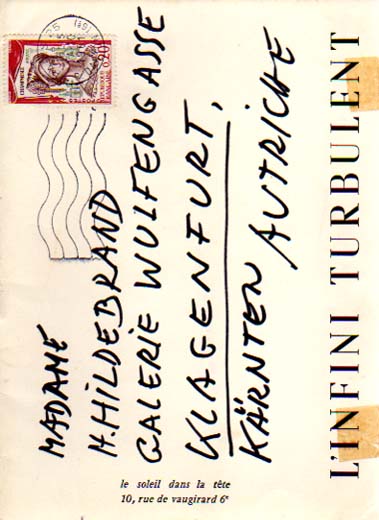 MADAME
H. HILDEBRAND
GALERIE WULFENGASSE
KLAGENFURT,
KÄRNTEN AUTRICHE
L'INFINI TURBULENT
le soleil dans la tête
10, rue de vaugirard 6e
0,20